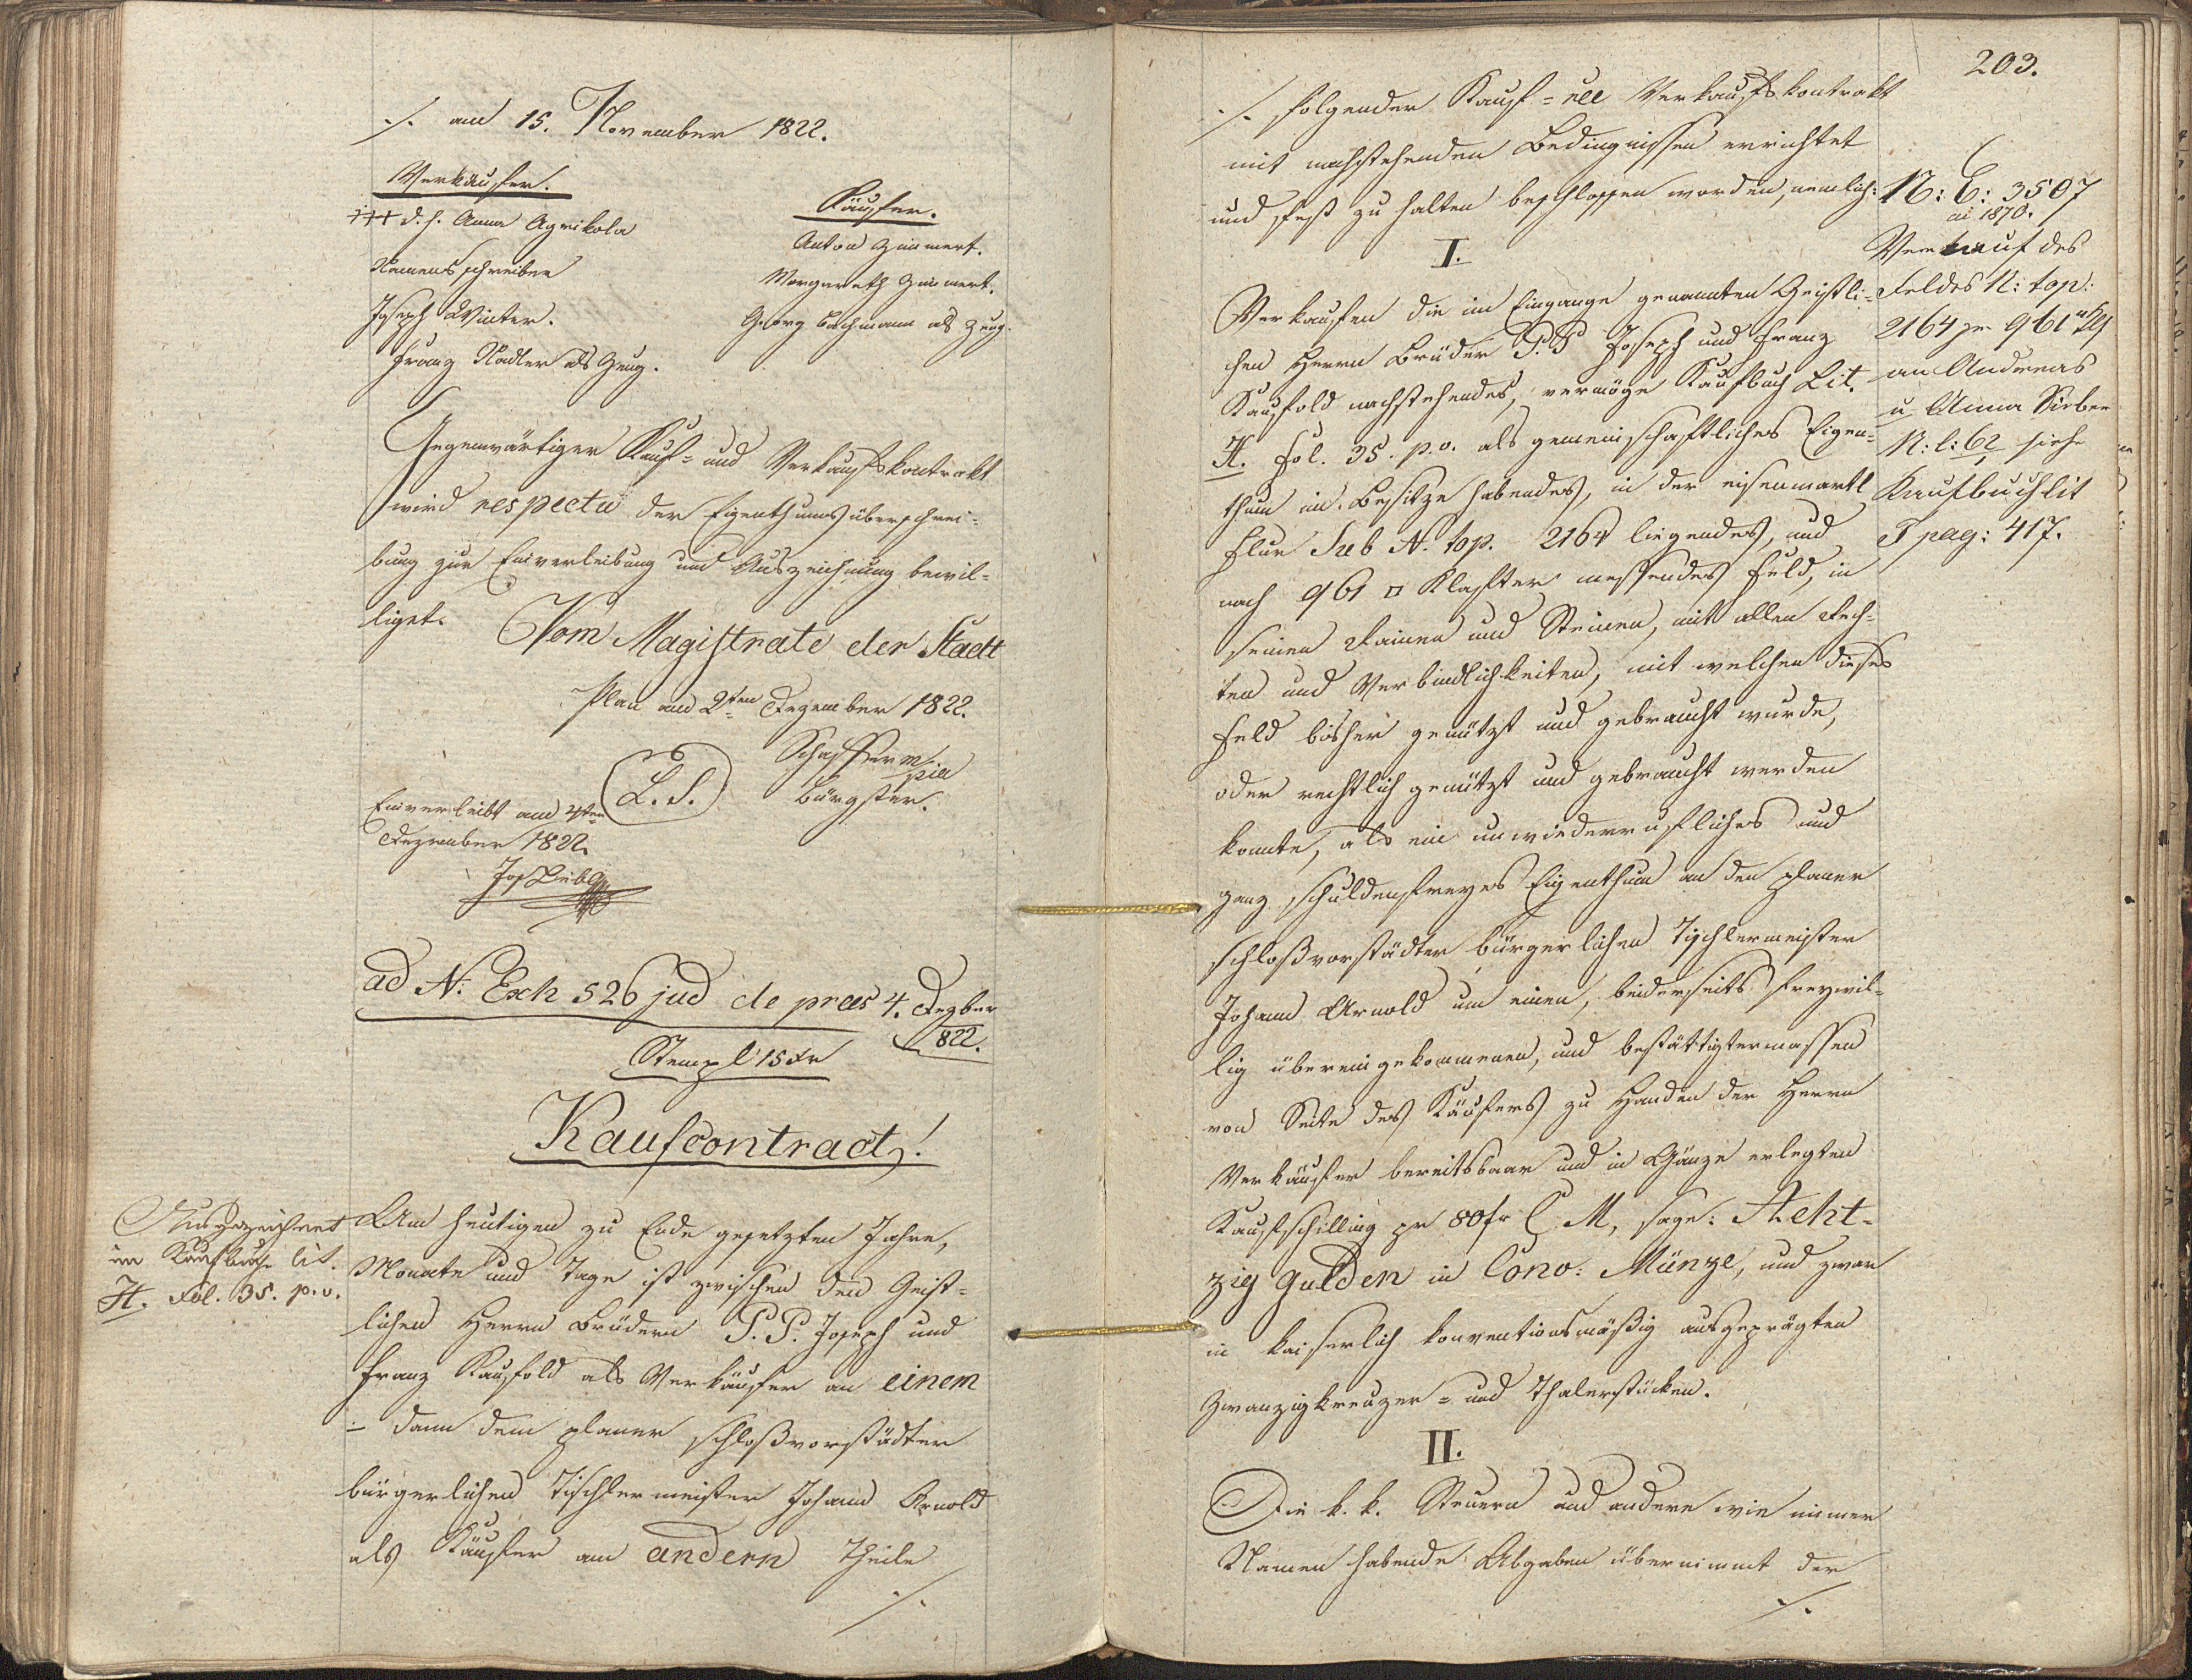 ./. am 15. November 1822.
Verkäufer.
+++ d. h. Anna Agrikola
Namensschreiber
Joseph Winter.
Franz Stadler als Zeug.
Käufer.
Anton Zimmert.
Margareth Zimmert.
Georg Bachmann als Zeug.
Gegenwärtiger Kauf= und Verkaufskontrakt
wird respectu der Eigenthumsüberschrei=
bung zur Einverleibung und Auszeichnung bewil=
liget. Vom Magistrate der Stadt
Plan am 2ten Dezember 1822.
L. S.
Schaffer m/pia
Bürgster.
Einverleibt am 4ten
Dezember 1822.
Jos Liebl
ad N: Exh 526 jud de praes 4. Dezber
822.
Stempl 15 xr
Kaufcontract!
Ausgezeichnet
im Kaufbuche lit.
H. Fol. 35. p. v.
Am heutigen zu Ende gesetzten Jahre,
Monate und Tage ist zwischen den Geist=
lichen Herrn Brüdern P. P. Joseph und
Franz Kaufold als Verkäufer an einem
– dann dem planer schloßvorstädter
bürgerlichen Tischlermeister Johann Arnold
als Käufer am andern Theile
./.
203.
./. folgender Kauf= und Verkaufskontrakt
mit nachstehenden Bedingnissen errichtet
und fest zu halten beschlossen worden, nemlich:
I.
Verkaufen die im Eingange genannten Geistli=
chen Herrn Brüder P. P Joseph und Franz
Kaufold nachstehendes, vermöge Kaufbuch Lit.
H. Fol. 35. p. v. als gemeinschaftliches Eigen=
thum im Besitze habendes, in der eisenmartl
Flur Sub N. top. 2164 liegendes, und
nach 961 □ Klafter messendes Feld, in
seinen Rainen und Steinen, mit allen Rech=
ten und Verbindlichkeiten, mit welchen dieses
Feld bisher genützt und gebraucht wurde,
oder rechtlich genützt und gebraucht werden
konnte, als ein unwiederrufliches und
ganz schuldenfreyes Eigenthum an den planer
schloßvorstädter bürgerlichen Tischlermeister
Johann Arnold um einen, beiderseits freywil=
lig übereingekommenen, und bestättigtermassen
von Seite des Käufers zu Handen der Herrn
Verkäufer bereitsbaar und in Gänze erlegten
Kaufschilling pr 80 fr C. M, sage: Acht=
zig Gulden in Conv: Münze, und zwar
in kaiserlich konventionsmäßig ausgeprägten
Zwanzigkreuzer= und Thalerstücken.
II.
Die k. k. Steuern und andere wie immer
Namen habende Abgaben übernimmt der
./.
N: E: 3507
ai 1870.
Verkauf des
Feldes N: top:
2164 pr 961
an Andreas
u Anna Sieber
N: C: 62 siehe
Kaufbuch lit
T pag: 417.